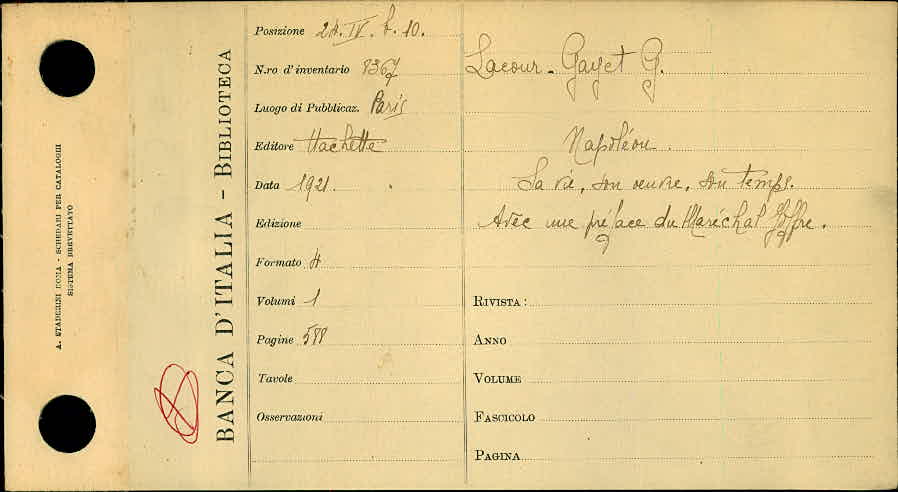 A. STADERINI ROMA - SCHEDARI PER CATALOGHI
SISTEMA BREVETTATO
BANCA D'ITALIA - BIBLIOTECA
Posizione 24. IV. b. 10.
N.ro d'inventario 8367
Luogo di Pubblicaz. Paris
Editore Hachette
Data 1921.
Edizione
Formato 4
Volumi 1
Pagine 588
Tavole
Osservazioni
Lacour-Gayet G.
Napoléon.
Sa vie, son œuvre, son temps.
Avec une préface du Maréchal Joffre.
RIVISTA:
ANNO
VOLUME
FASCICOLO
PAGINA